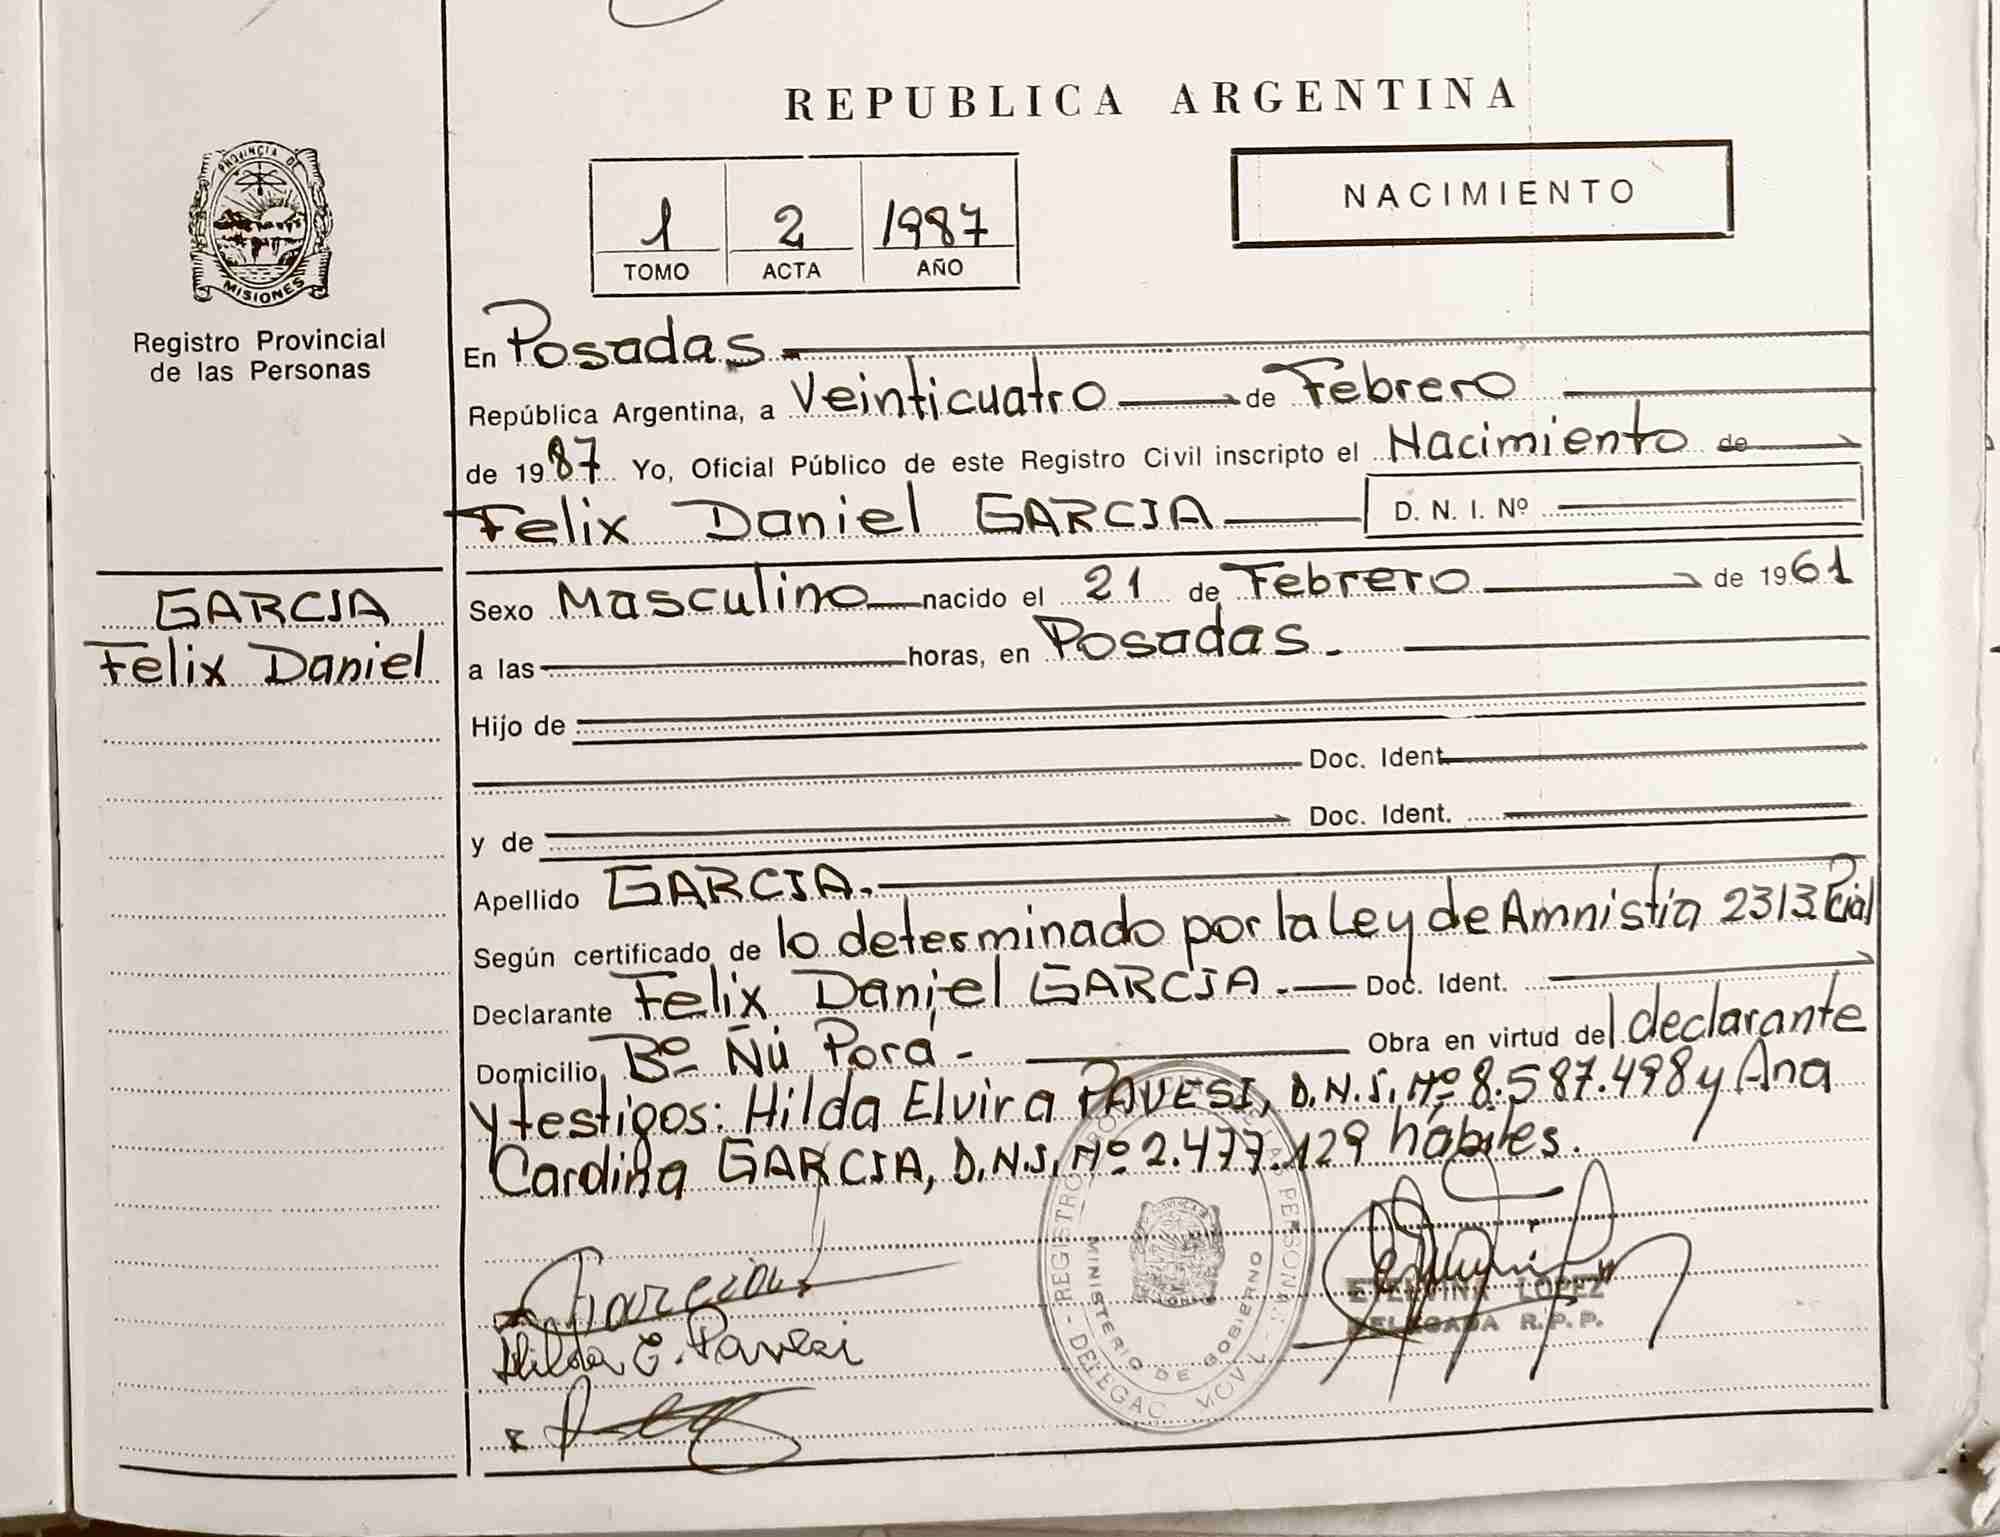 REPUBLICA ARGENTINA
PROVINCIA DE
MISIONES
Registro Provincial
de las Personas
1 2 1987
TOMO ACTA AÑO
NACIMIENTO
En Posadas
República Argentina, a Veinticuatro de Febrero
de 1987 Yo, Oficial Público de este Registro Civil inscripto el Nacimiento de
Felix Daniel GARCIA D. N. I. Nº
GARCIA
Felix Daniel
Sexo Masculino nacido el 21 de Febrero de 1961
a las horas, en Posadas.
Hijo de
Doc. Ident.
y de Doc. Ident.
Apellido GARCIA.
Según certificado de lo determinado por la Ley de Amnistía 2313 Pcial
Declarante Felix Daniel GARCIA. Doc. Ident.
Domicilio Bº Ñú Porá Obra en virtud del declarante
y testigos: Hilda Elvira PAVESI, D.N.I. Nº 8.587.498 y Ana
GARCIA, D.N.I. Nº 2.477.129 hábiles.
Garcia
Hilda E. Pavesi
REGISTRO PERSONAS
MINISTERIO DE GOBIERNO
MOVIL
ETELVINA LOPEZ
DELEGADA R.P.P.